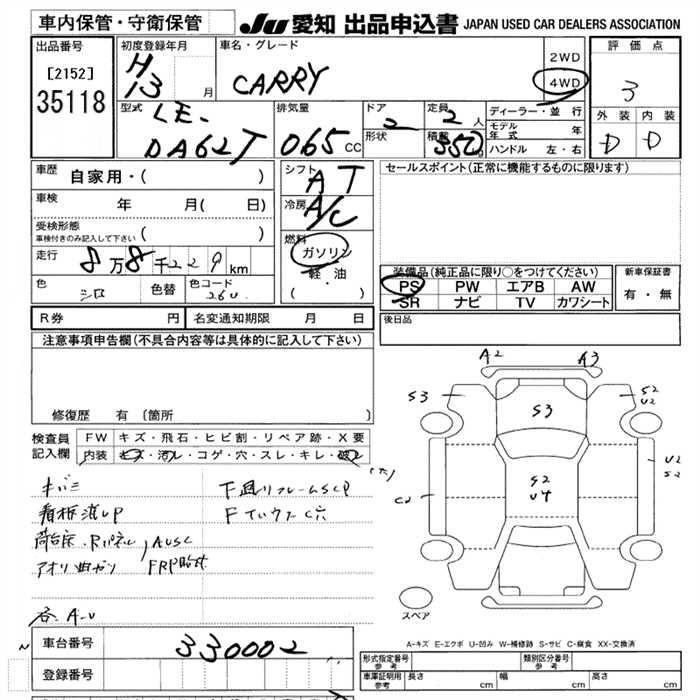 車内保管・守衛保管
JU 愛知 出品申込書 JAPAN USED CAR DEALERS ASSOCIATION
出品番号
[2152]
35118
初度登録年月
H
13 月
車名・グレード
CARRY
2WD
4WD
評価点
3
外装 内装
D D
型式
LE-
DA62T
排気量
065 CC
ドア
2
形状
定員
2 人
積載
350
ディーラー・並行
モデル年式 年
ハンドル 左・右
車歴
自家用・( )
車検
年 月( 日)
受検形態
車検付きのみ記入して下さい ( )
走行
8万8千229km
色
シロ
色替
色コード
26U
シフト
AT
冷房
A/C
燃料
ガソリン
軽油
・
( )
セールスポイント(正常に機能するものに限ります)
装備品(純正品に限り〇をつけてください)
PS PW エアB AW
SR ナビ TV カワシート
新車保証書
有・無
R券 円
名変通知期限 月 日
後日品
注意事項申告欄(不具合内容等は具体的に記入して下さい)
修復歴 有〔箇所 〕
検査員
記入欄
FW キズ・飛石・ヒビ割・リペア跡・X要
内装 キズ・汚レ・コゲ・穴・スレ・キレ・破レ
キバミ
看板渡UP
荷台床・Rパネル
AUSC
アオリ曲ガリ
FRP貼付
各A-U
下廻リフレームSCP
A2
A3
S3
S3
S2
U2
U2
S2
S2
U4
C2
スペア
A-キズ E-エクボ U-凹み W-補修跡 S-サビ C-腐食 XX-交換済
車台番号
330002
登録番号
形式指定番号
参考
類別区分番号
参考
車庫証明用
参考
長さ cm
幅 cm
高さ cm